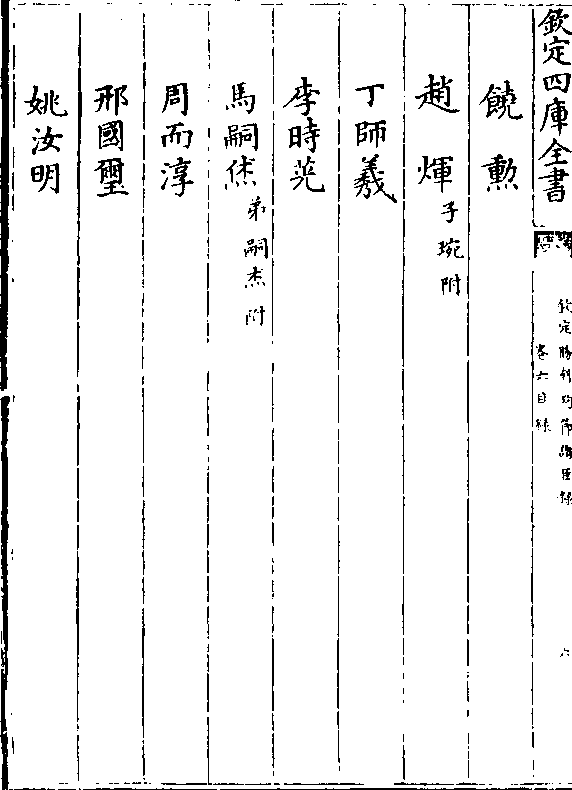 欽定四庫全書
欽定勝朝殉節諸臣錄
卷六目錄
六
饒勲
趙煇子琬附
丁師羲
李時茫
馬嗣𤇆弟嗣杰附
周而淳
邢國璽
姚汝明